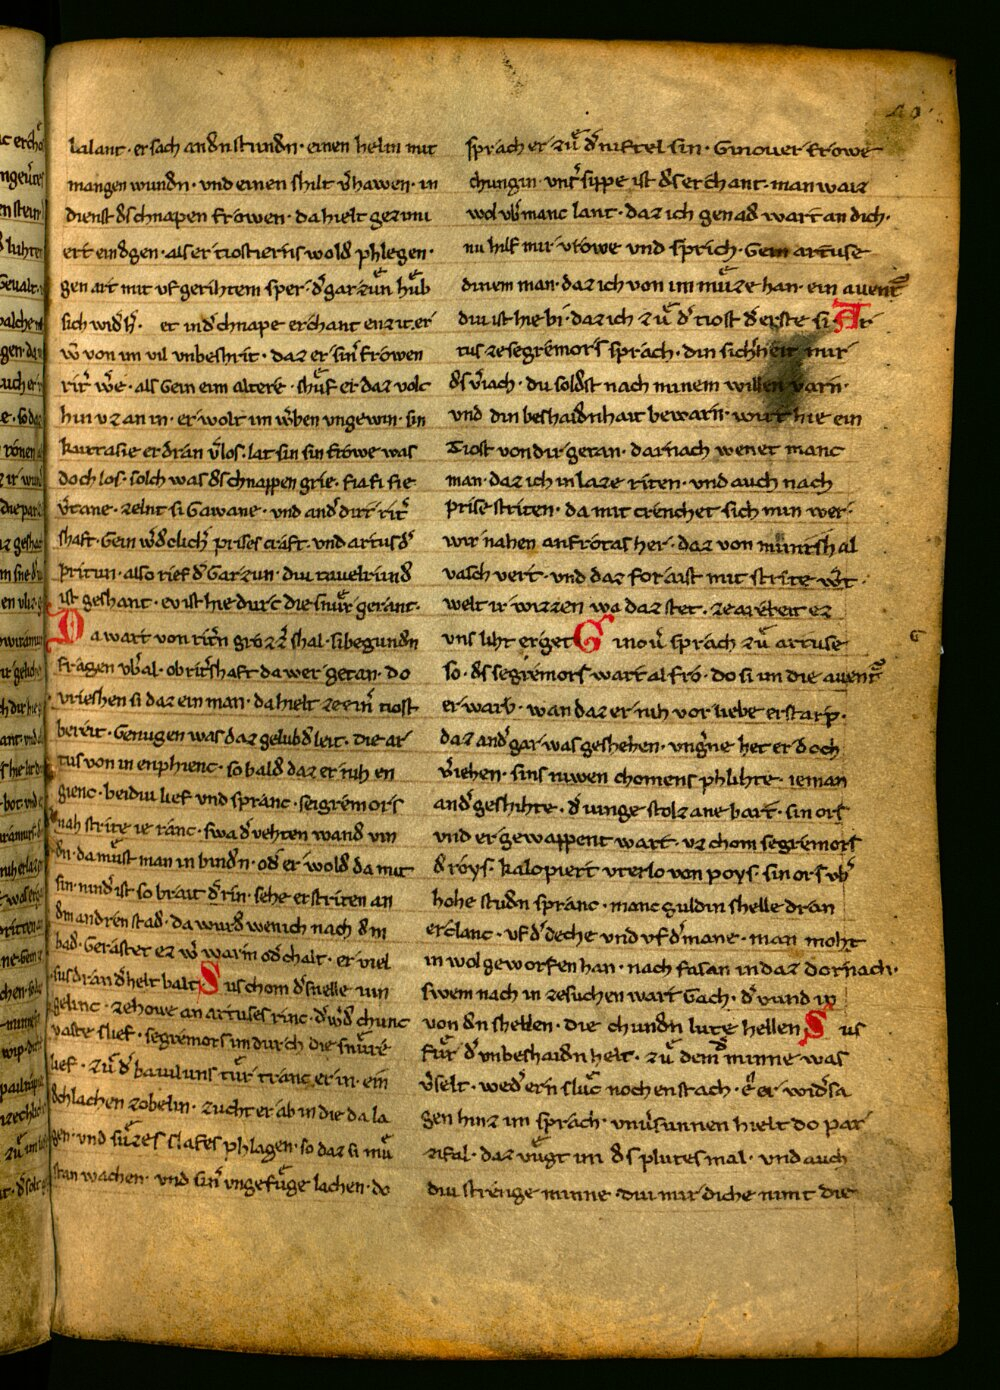 lalant · er sach andn stundn · einen helm mit
mangen wundn · vnd einen shilt v̄hawen · in
dienst ds chnapen frowen · da hielt gezimi
ert eindgen · alser tiostierns wold phlegen ·
gen art mit vf gerihtem sper · d̄ garzvͤn hvͤb
sich wid h̄ · et in d̄ chnape erchant enzit · er
w̄ von im vil vnbeshrit · daz er sin̄ frowen
rit̄ w̄e · als Gein eim altere · shvͤf er daz volc
hin vz an in · er wolt im w̄ben vngewin · sin
kurtasie er dran v̄los · lat sin sin frowe was
doch los · solch was ds chnappen grie · fia fi fie
v̄tane · zelnt si Gawane · vnd and̄ dirr rit̄
shaft · Gein w̄dclich̄ prises craft · vnd artus d̄
pritun · also rief d̄ Garzun · div tavelrund
ist geshant · ev ist hie durc die snvͤr gerant ·
Da wart von rit̄n groz̄z shal · si begundn
fragen vb̄al · ob rit̄shaft da wer getan · do
vrieshen si daz ein man · da hielt zeein̄ tiost
bereit · Genugen was daz gelubd leit · die ar
tus von in enphienc · so bald daz er nih en
gienc · beidiu lief vnd spranc · seigremors
nah strite ie ranc · swa d̄ vehten wand vin
dn · da mvͤst man in bindn · od er wold da mit
sin · nind̄ ist so brait d̄ rin · sehe er striten an
dm andren stad · da wurd wenich nach dm
bad · Geraster ez w̄ warm od chalt · er viel
sus dran d̄ helt balt · Sus chom d̄ snelle iun
gelinc · zehowe an artuses rinc · d̄ w̄d chunc
vaste slief · segremors im durch die snvͤre
lief · zvͤ d̄ bavilvns tvͤr tranc er in · ein
dchlachen zobelin · zucht er ab in die da la
gen · vnd svͤzes slafes phlagen · so daz si mvͤ
stan wachen · vnd sin̄ vngefvͤge lachen · do
sprach er zvͤ d̄ niftel sin · Ginover frowe
chungin · vnser̄ sippe ist ds erchant · man waiz
wol vb̄ manc lant · daz ich genad wart an dich ·
nu hilf mir vrowe vnd sprich · Gein artuse
dinem man · daz ich von im mvͤze han · ein auent̄
div ist hie bi · daz ich zvͤ d̄ tiost d erste si · Ar
tus ze segremors sprach · din sich̄heit mir
ds v̄iach · du soldst nach minem willen varn ·
vnd din beshaidnhait bewarn · wirt hie ein
Tiost von dir getan · darnach wenet manc
man · daz ich in laze riten · vnd auch nach
prise striten · da mit crenchet sich min wer ·
wir nahen anfrotas her · daz von muntshal
vasch vert · vnd daz foraist mit strite w̄t ·
welt ir wizzen wa daz stet · ze arebeit ez
vns liht erget · Ginov̄ sprach zvͤ artuse
so · ds segremors wart al fro · do si im die auent̄
erwarb · wan daz er nih vor liebe erstarp ·
daz and̄ gar was geshehen · vnḡne het er doch
v̄iehen · sins niwen chomens phlihte · ieman
and̄ geshihte · d̄ iunge stolz ane bart · sin ors
vnd er gewappent wart · vz chom segremors
d roys · kalopiert vterlo von poys · sin ors vb̄
hohe studn spranc · manc guldin shelle dran
erclanc · vf d̄ deche vnd vf d̄ mane · man moht
in wol geworfen han · nach fasan in daz dornach ·
swem nach in zesuchen wart Gach · d̄ vund in
von dn shellen · die chundn lute hellen · Sus
fvͤr d̄ vnbeshaidn helt · zvͤ dem d̄ minne was
v̄selt · wed̄ ern slvͤc noch enstach · e er widsa
gen hinz im sprach · vnv̄sunnen hielt do par
zifal · daz vvͤgt im ds plutes mal · vnd auch
div strenge minne · div mir diche nimt die